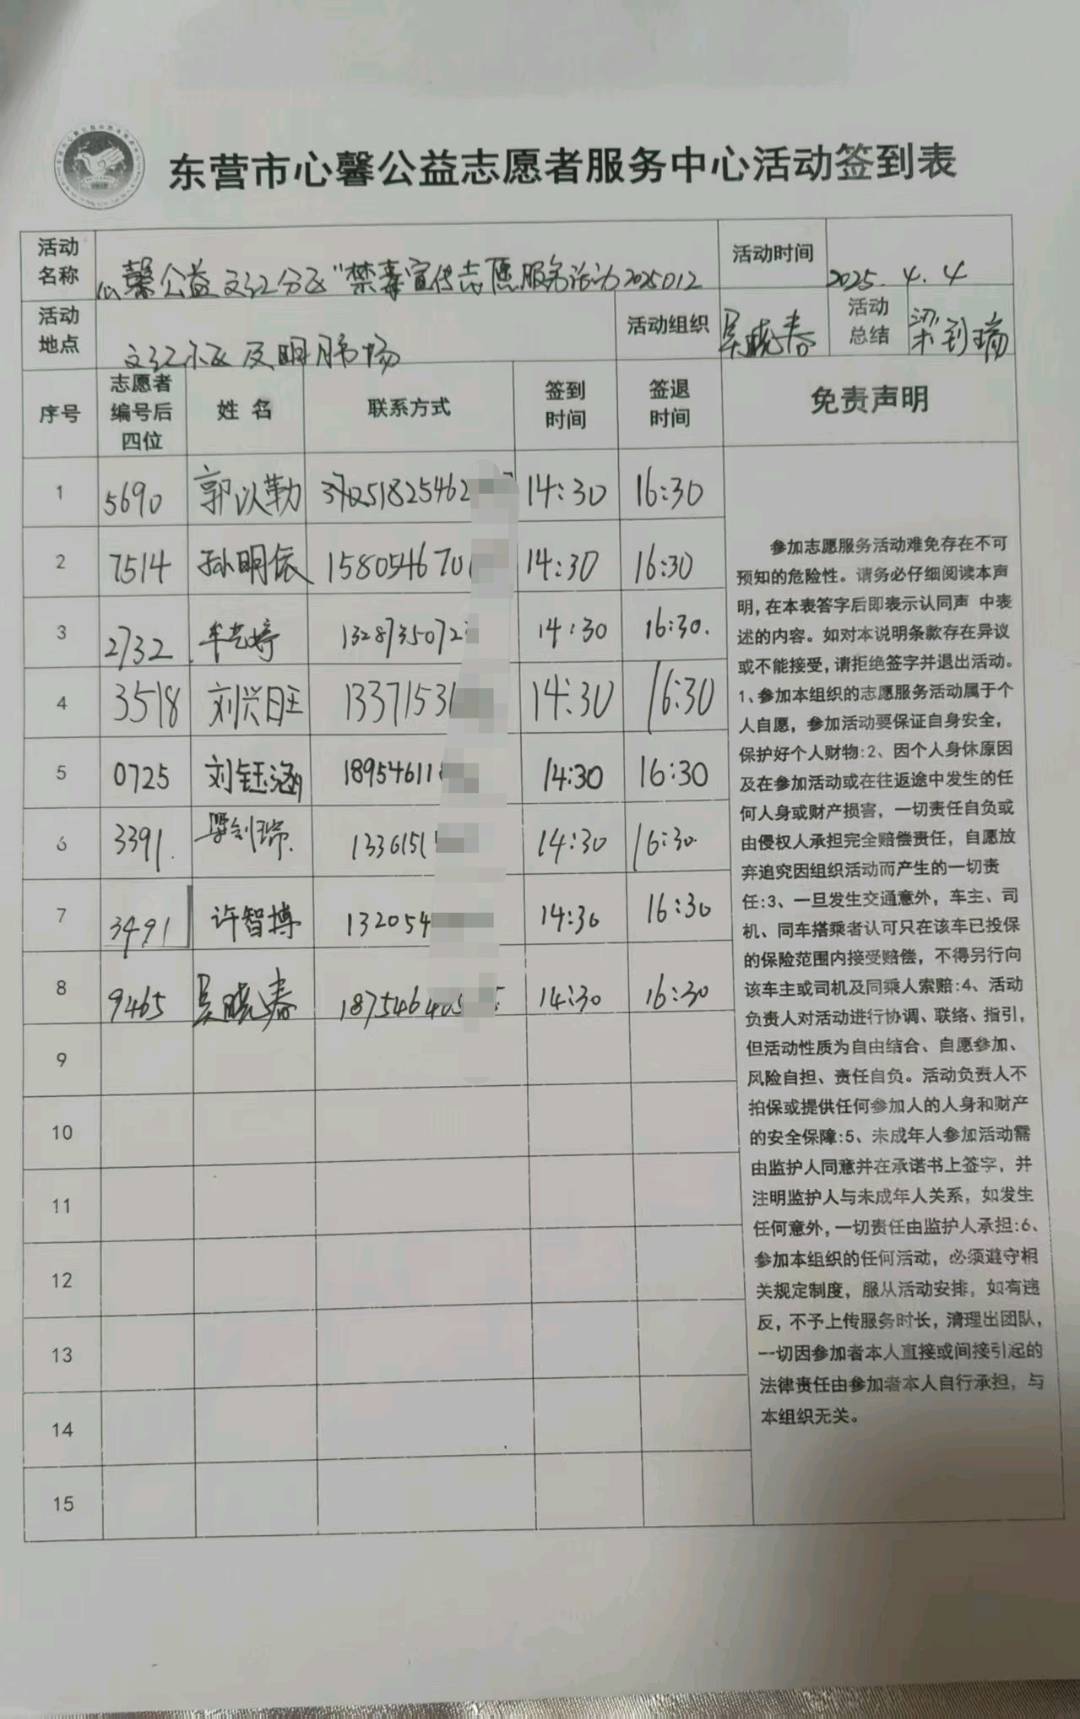 东营市心馨公益志愿者服务中心活动签到表
活动名称 心馨公益文汇分区"禁毒宣传志愿服务活动2025012 活动时间 2025.4.4
活动地点 文汇社区及明月市场 活动组织 吴晓春 活动总结 梁钊瑞
序号 志愿者编号后四位 姓名 联系方式 签到时间 签退时间 免责声明
1 5690 郭以勒 37051825462 14:30 16:30
2 7514 孙明依 158054670 14:30 16:30
3 2732 牟艺婷 1328735072 14:30 16:30.
4 3518 刘兴旺 13371531 14:30 16:30
5 0725 刘钰涵 189546118 14:30 16:30
6 3391. 梁钊瑞. 1336151 14:30 16:30.
7 3491 许智博 132054 14:30 16:30
8 9465 吴晓春 187546 14:30 16:30
9
10
11
12
13
14
15
参加志愿服务活动难免存在不可
预知的危险性。请务必仔细阅读本声
明,在本表答字后即表示认同声 中表
述的内容。如对本说明条款存在异议
或不能接受,请拒绝签字并退出活动。
1、参加本组织的志愿服务活动属于个
人自愿，参加活动要保证自身安全，
保护好个人财物:2、因个人身休原因
及在参加活动或在往返途中发生的任
何人身或财产损害，一切责任自负或
由侵权人承担完全赔偿责任，自愿放
弃追究因组织活动而产生的一切责
任:3、一旦发生交通意外，车主、司
机、同车搭乘者认可只在该车已投保
的保险范围内接受赔偿，不得另行向
该车主或司机及同乘人索赔:4、活动
负责人对活动进行协调、联络、指引，
但活动性质为自由结合、自愿参加、
风险自担、责任自负。活动负责人不
拍保或提供任何参加人的人身和财产
的安全保障:5、未成年人参加活动需
由监护人同意并在承诺书上签字，并
注明监护人与未成年人关系，如发生
任何意外,一切责任由监护人承担:6、
参加本组织的任何活动，必须遵守相
关规定制度，服从活动安排，如有违
反，不予上传服务时长，清理出团队，
一切因参加者本人直接或间接引起的
法律责任由参加者本人自行承担，与
本组织无关。